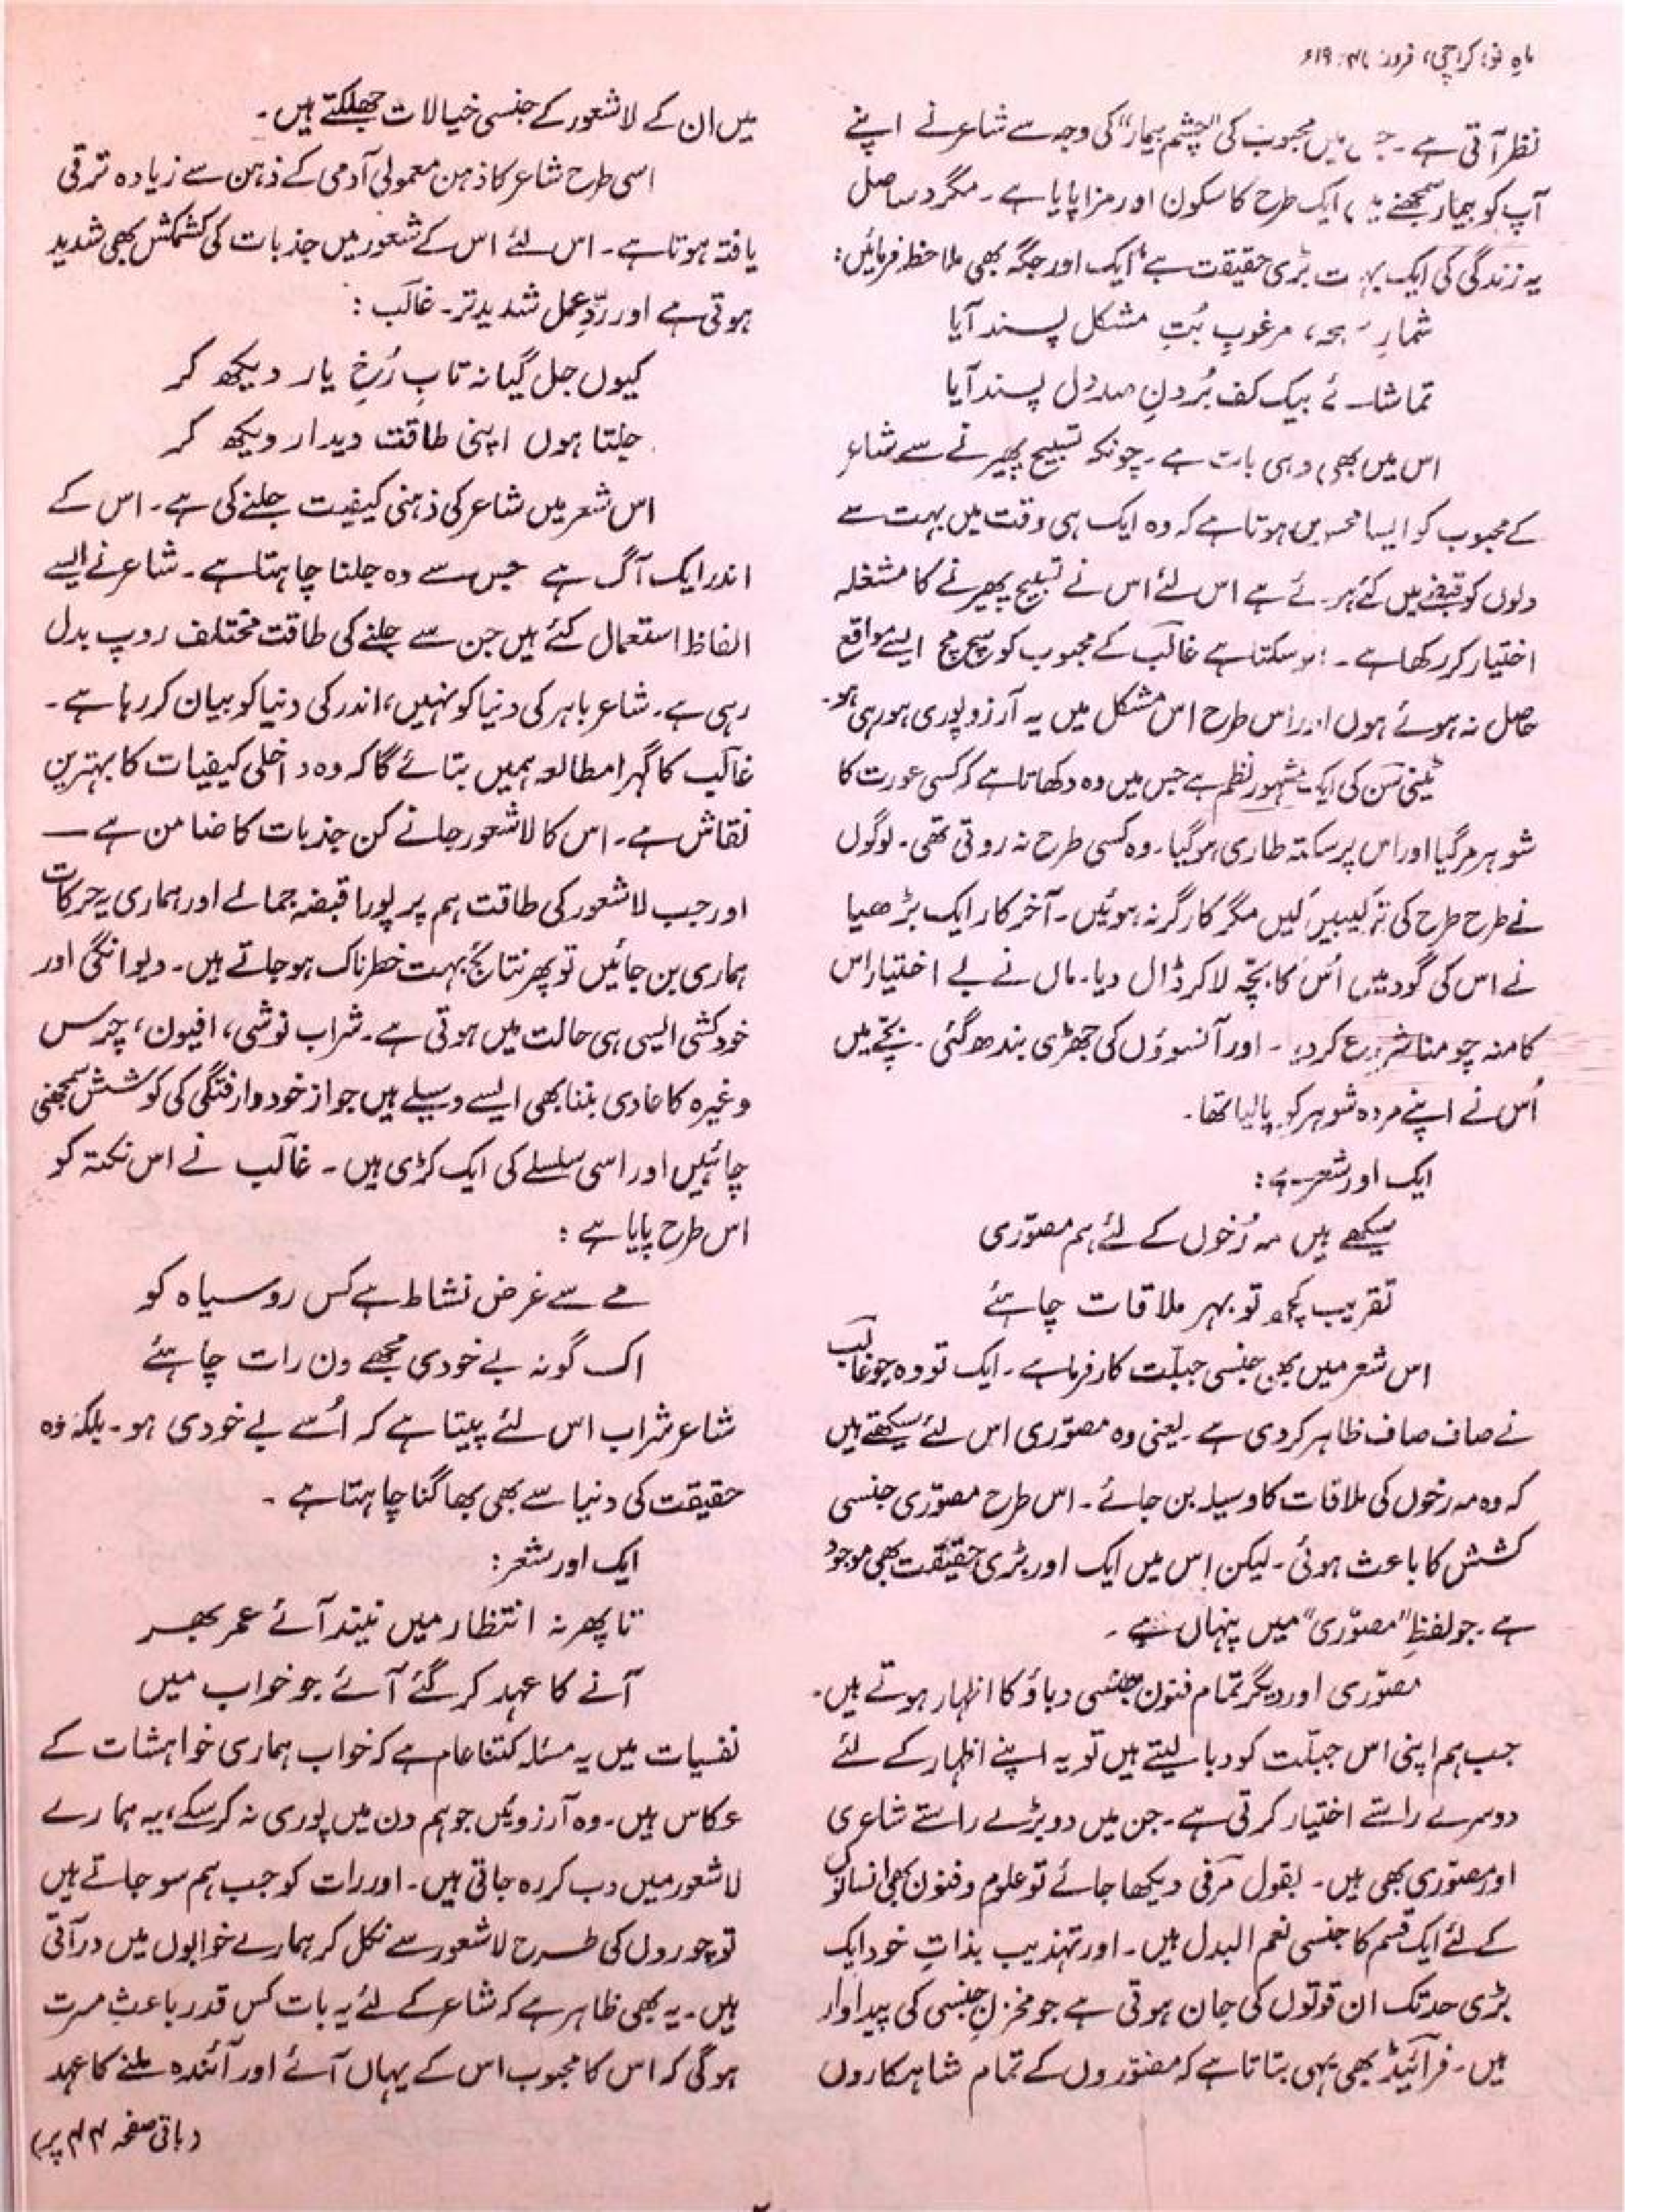 ماہِ نو، کراچی، فروری
نظر آتی ہے۔ جس میں محبوب کی "چشمِ بیمار" کی وجہ سے شاعر نے اپنے
آپ کو بیمار سمجھنے میں ایک طرح کا سکون اور مزا پایا ہے۔ مگر دراصل
یہ زندگی کی ایک بہت بڑی حقیقت ہے، ایک اور جگہ بھی ملاحظہ فرمائیں:
شمارِ سبحہ، مرغوبِ بُتِ مشکل پسند آیا
تماشائے بیک کف بُردنِ صد دل پسند آیا
اس میں بھی وہی بات ہے۔ چونکہ تسبیح پھیرنے سے شاعر
کے محبوب کو ایسا محسوس ہوتا ہے کہ وہ ایک ہی وقت میں بہت سے
دلوں کو قبضے میں کئے ہوئے ہے اس لئے اس نے تسبیح پھیرنے کا مشغلہ
اختیار کر رکھا ہے۔ ہو سکتا ہے غالب کے محبوب کو سچ مچ ایسے مواقع
حاصل نہ ہوئے ہوں اور اس طرح اس مشکل میں یہ آرزو پوری ہو رہی ہو۔
ٹینی سن کی ایک مشہور نظم ہے جس میں وہ دکھاتا ہے کہ کسی عورت کا
شوہر مر گیا اور اس پر سکتہ طاری ہو گیا۔ وہ کسی طرح نہ روتی تھی۔ لوگوں
نے طرح طرح کی ترکیبیں کیں مگر کارگر نہ ہوئیں۔ آخر کار ایک بڑھیا
نے اس کی گود میں اُس کا بچّہ لا کر ڈال دیا۔ ماں نے بے اختیار اس
کا منہ چومنا شروع کردیا۔ اور آنسوؤں کی جھڑی بندھ گئی۔ بچّے میں
اُس نے اپنے مردہ شوہر کو پا لیا تھا۔
ایک اور شعر ہے:
سیکھے ہیں مہ رُخوں کے لئے ہم مصوّری
تقریب کچھ تو بہرِ ملاقات چاہئے
اس شعر میں بھی جنسی جبلّت کارفرما ہے۔ ایک تو وہ جو غالب
نے صاف صاف ظاہر کر دی ہے۔ یعنی وہ مصوّری اس لئے سیکھتے ہیں
کہ وہ مہ رخوں کی ملاقات کا وسیلہ بن جائے۔ اس طرح مصوّری جنسی
کشش کا باعث ہوئی۔ لیکن اس میں ایک اور بڑی حقیقت بھی موجود
ہے۔ جو لفظِ "مصوّری" میں پنہاں ہے۔
مصوّری اور دیگر تمام فنون جنسی دباؤ کا اظہار ہوتے ہیں۔
جب ہم اپنی اس جبلّت کو دبا لیتے ہیں تو یہ اپنے اظہار کے لئے
دوسرے راستے اختیار کرتی ہے۔ جن میں دو بڑے راستے شاعری
اور مصوّری بھی ہیں۔ بقول مرفی دیکھا جائے تو علوم و فنون بھی انسانوں
کے لئے ایک قسم کا جنسی نعم البدل ہیں۔ اور تہذیب بذاتِ خود ایک
بڑی حد تک ان قوتوں کی جان ہوتی ہے جو مخزنِ جنسی کی پیداوار
ہیں۔ فرائیڈ بھی یہی بتاتا ہے کہ مصّوروں کے تمام شاہکاروں
میں ان کے لاشعور کے جنسی خیالات جھلکتے ہیں۔
اسی طرح شاعر کا ذہن معمولی آدمی کے ذہن سے زیادہ ترقی
یافتہ ہوتا ہے۔ اس لئے اس کے شعور میں جذبات کی کشمکش بھی شدید
ہوتی ہے اور ردِّ عمل شدید تر۔ غالب:
کیوں جل گیا نہ تابِ رُخِ یار دیکھ کر
جلتا ہوں اپنی طاقتِ دیدار دیکھ کر
اس شعر میں شاعر کی ذہنی کیفیت جلنے کی ہے۔ اس کے
اندر ایک آگ ہے جس سے وہ جلنا چاہتا ہے۔ شاعر نے ایسے
الفاظ استعمال کئے ہیں جن سے جلنے کی طاقت مختلف روپ بدل
رہی ہے۔ شاعر باہر کی دنیا کو نہیں، اندر کی دنیا کو بیان کر رہا ہے۔
غالب کا گہرا مطالعہ ہمیں بتائے گا کہ وہ داخلی کیفیات کا بہترین
نقاش ہے۔ اس کا لاشعور جانے کن جذبات کا ضامن ہے —
اور جب لاشعور کی طاقت ہم پر پورا قبضہ جمالے اور ہماری یہ حرکات
ہماری بن جائیں تو پھر نتائج بہت خطرناک ہو جاتے ہیں۔ دیوانگی اور
خودکشی ایسی ہی حالت میں ہوتی ہے۔ شراب نوشی، افیون، چرس
وغیرہ کا عادی بننا بھی ایسے وسیلے ہیں جو از خود وارفتگی کی کوشش سمجھنی
چاہئیں اور اسی سلسلے کی ایک کڑی ہیں۔ غالب نے اس نکتہ کو
اس طرح پایا ہے:
مے سے غرض نشاط ہے کس روسیاہ کو
اک گونہ بے خودی مجھے دن رات چاہئے
شاعر شراب اس لئے پیتا ہے کہ اُسے بے خودی ہو۔ بلکہ وہ
حقیقت کی دنیا سے بھی بھاگنا چاہتا ہے۔
ایک اور شعر:
تا پھر نہ انتظار میں نیند آئے عمر بھر
آنے کا عہد کر گئے آئے جو خواب میں
نفسیات میں یہ مسئلہ کتنا عام ہے کہ خواب ہماری خواہشات کے
عکاس ہیں۔ وہ آرزوئیں جو ہم دن میں پوری نہ کر سکے، یہ ہمارے
لاشعور میں دب کر رہ جاتی ہیں۔ اور رات کو جب ہم سو جاتے ہیں
تو چوروں کی طرح لاشعور سے نکل کر ہمارے خوابوں میں در آتی
ہیں۔ یہ بھی ظاہر ہے کہ شاعر کے لئے یہ بات کس قدر باعثِ مسرت
ہوگی کہ اس کا محبوب اس کے یہاں آئے اور آئندہ ملنے کا عہد
(باقی صفحہ ۴۴ پر)